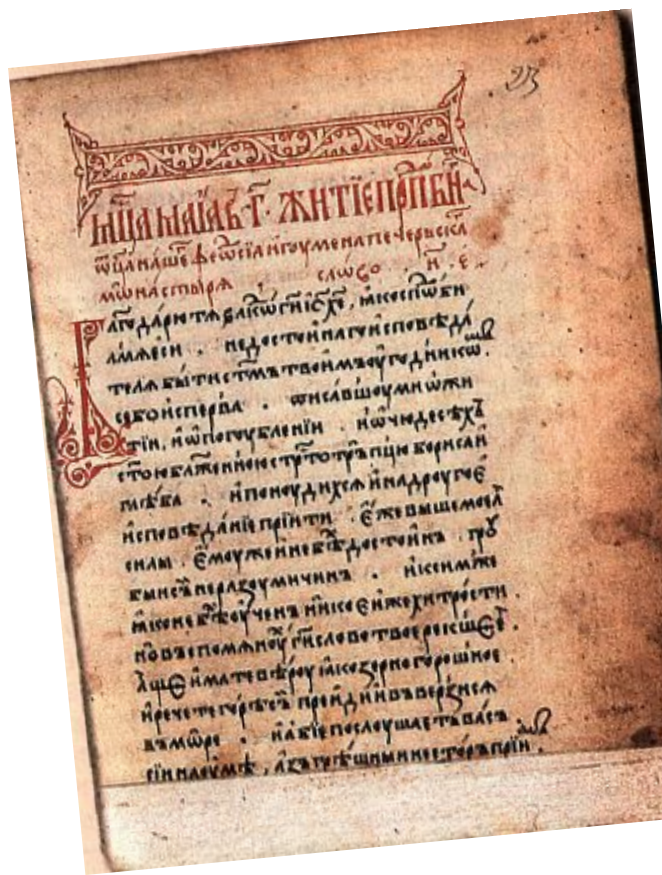 мц҃а маїа въ г҃· житїе прпⷣбнⷢ
ѿц҃а нашеⷢ ѳеѡⷣсїа игоумена печерьскаⷢ
мѡнастырѧ , слѡво н҃ е҃
лагодарю тѧ влⷣко мои гн҃ їс хе, ꙗко сподоби
лъ мѧ еси . недостоинаго исповѣда
телѧ быти ст҃мъ твоимъ оугодникѡⷨ.
се бо исперва . списавшоу ми ѡ жи
тїи, и ѡ погоублении . и ѡ чюдесѣхъ
ст҃ою блаженною стрⷭтотръпцю бориса и
глѣба . и поноудихсѧ и на дроугое
исповѣданїе прїити . еже выше моеѧ
силы . емоу же и не бѣхъ достоинъ . гроу
бъ сы и неразоумиченъ . к симъ же
ꙗко не бѣхъ оученъ никоеи же хитрости .
но въспомѧноухъ гн҃ слово твое рекшее .
аще имате вѣроу ꙗко зерно горошное
и речете горѣ сеи преиди и въверзисѧ
въ мѡре . и абїе послоушаеть васъ
сїи на оумѣ , азъ грѣшныи несторъ прїимъ .